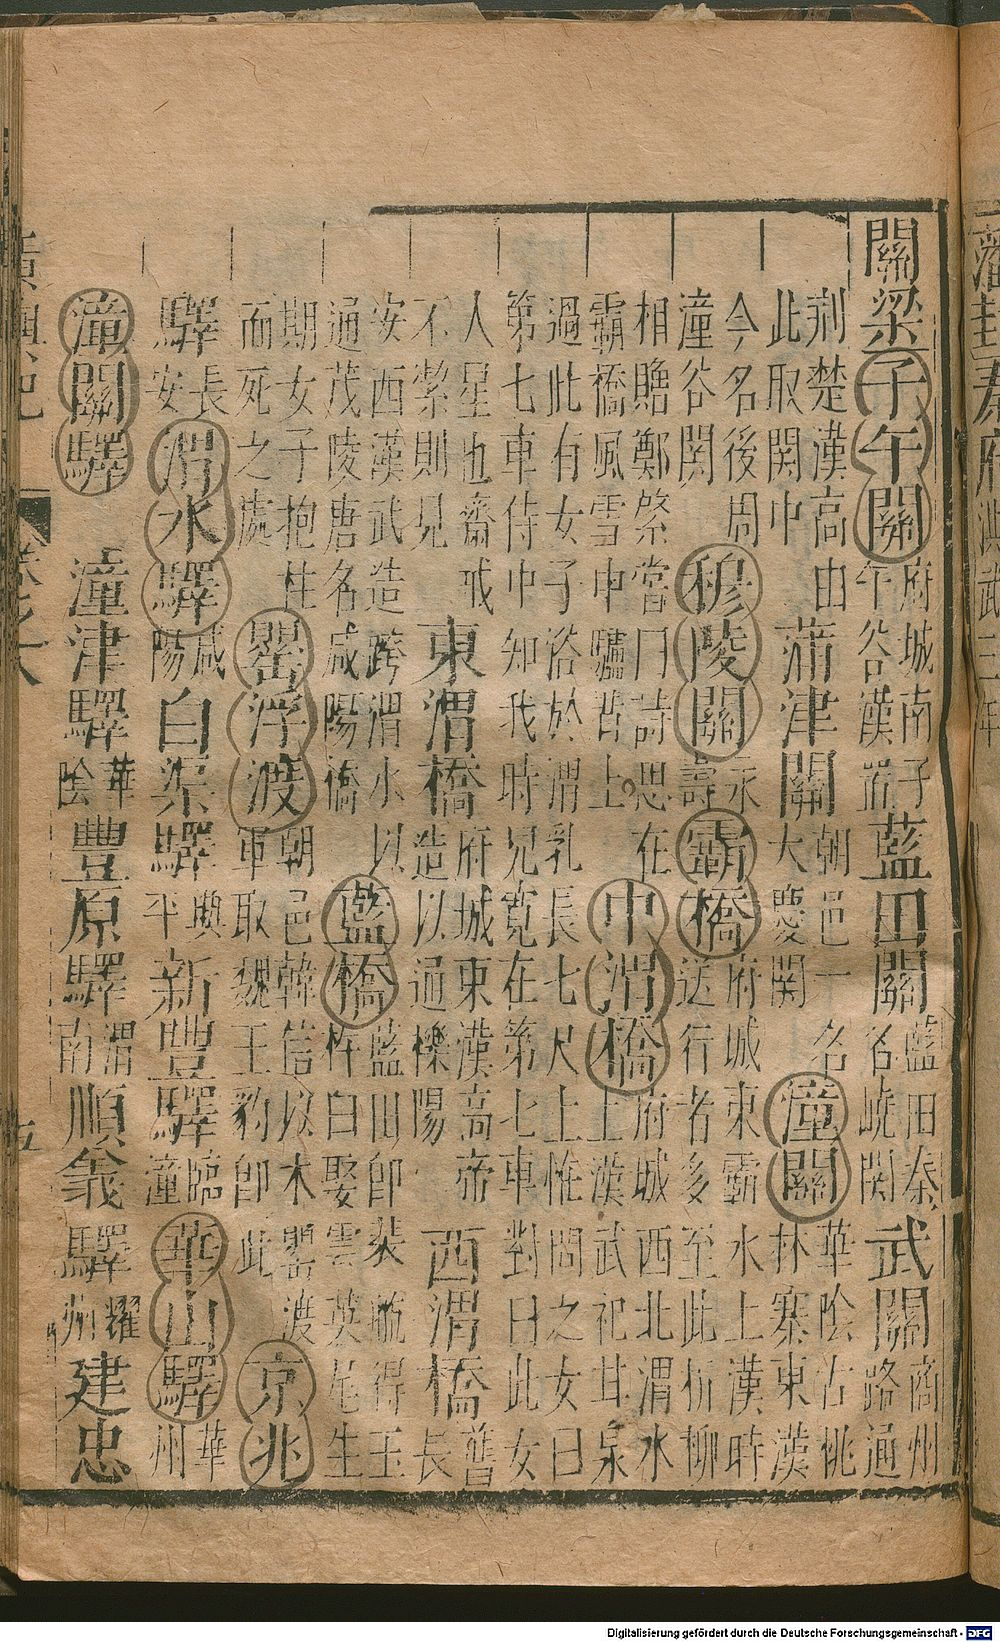 藩封秦府洪武三年
關梁子午關府城南子午谷漢置藍田關藍田秦名嶢関武關商州路通
荆楚漢高由此取関中蒲津關朝邑一名大慶関潼關華陰古桃林寨東漢
今名後周潼谷関穆陵關永壽霸橋府城東霸水上漢時送行者多至此折柳
相贈鄭綮當曰詩思在霸橋風雪中驢背上中渭橋府城西北渭水上漢武祀甘泉
過此有女子浴於渭乳長七尺上恠問之女曰第七車侍中知我時兒寛在第七車對曰此女
人星也齋戒不潔則見東渭橋府城東漢高帝造以通櫟陽西渭橋舊長
安西漢武造跨渭水以通茂陵唐名咸陽橋藍橋藍田即裴航得玉杵臼娶雲英尾生
期女子抱柱而死之處罌浮渡朝邑韓信以木罌渡軍取魏王豹即此京兆
驛長安渭水驛咸陽白渠驛興平新豐驛臨潼華山驛華州
潼關驛潼津驛華陰豐原驛渭南順義驛耀州建忠
廣輿記 卷之六 五
Digitalisierung gefördert durch die Deutsche Forschungsgemeinschaft - DFG